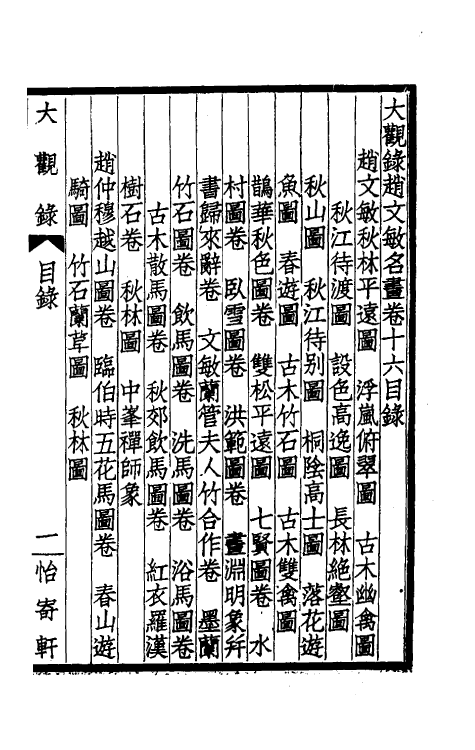 大觀錄趙文敏名畫卷十六目錄
趙文敏秋林平遠圖 浮嵐俯翠圖 古木幽禽圖
秋江待渡圖 設色高逸圖 長林絶壑圖
秋山圖 秋江待别圖 桐陰高士圖 落花遊
魚圖 春遊圖 古木竹石圖 古木雙禽圖
鵲華秋色圖卷 雙松平遠圖 七賢圖卷 水
村圖卷 臥雪圖卷 洪範圖卷 畫淵明象幷
書歸來辭卷 文敏蘭管夫人竹合作卷 墨蘭
竹石圖卷 飲馬圖卷 洗馬圖卷 浴馬圖卷
古木散馬圖卷 秋郊飲馬圖卷 紅衣羅漢
樹石卷 秋林圖 中峯禪師象
趙仲穆越山圖卷 臨伯時五花馬圖卷 春山遊
騎圖 竹石蘭草圖 秋林圖
大觀錄 目錄 一 怡寄軒